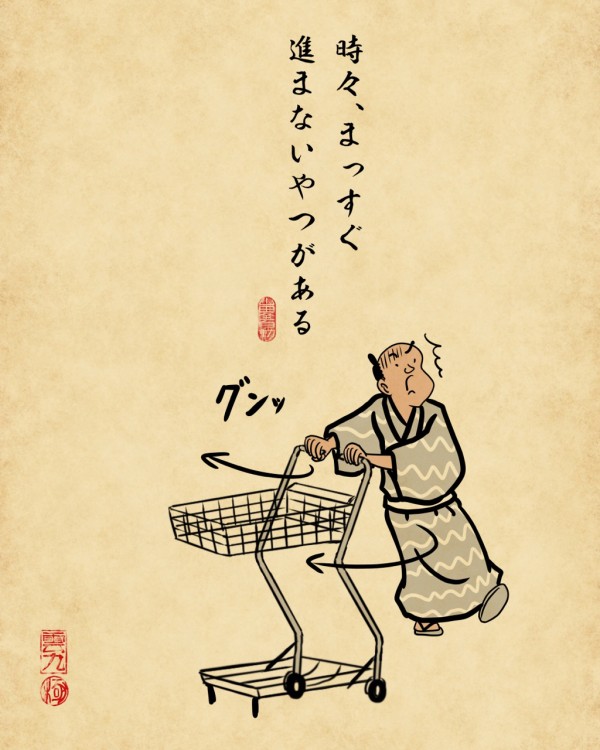 時々、まっすぐ
進まないやつがある
グンッ